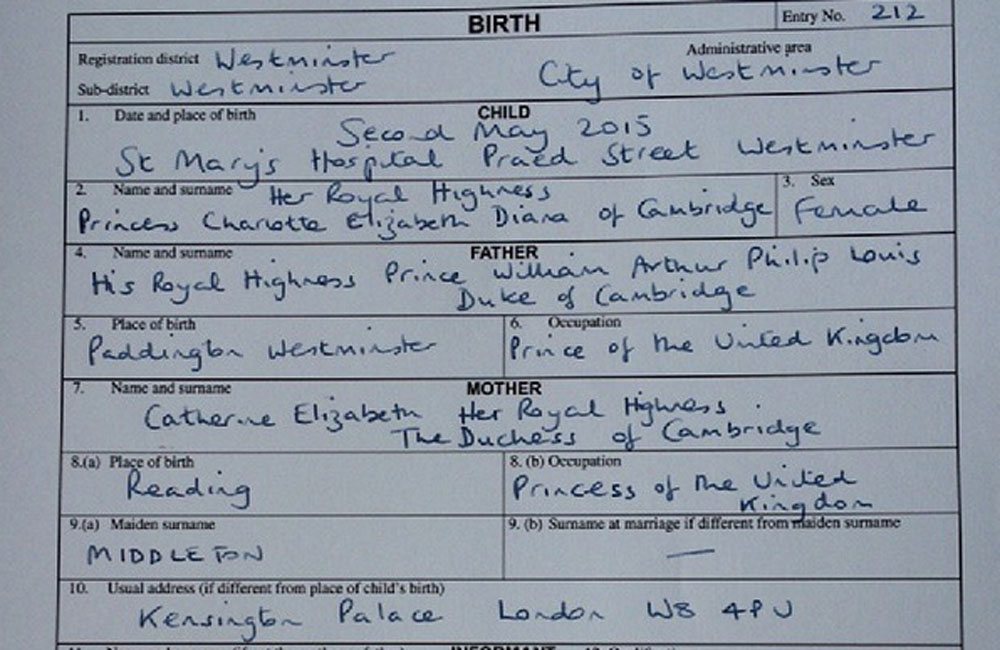 BIRTH
Entry No. 212
Registration district Westminster
Administrative area
Sub-district Westminster
City of Westminster
CHILD
1. Date and place of birth
Second May 2015
St Mary's Hospital Praed Street Westminster
2. Name and surname Her Royal Highness
Princess Charlotte Elizabeth Diana of Cambridge
3. Sex
Female
FATHER
4. Name and surname
His Royal Highness Prince William Arthur Philip Louis
Duke of Cambridge
5. Place of birth
Paddington Westminster
6. Occupation
Prince of the United Kingdom
MOTHER
7. Name and surname
Catherine Elizabeth Her Royal Highness
The Duchess of Cambridge
8.(a) Place of birth
Reading
8. (b) Occupation
Princess of the United
Kingdom
9.(a) Maiden surname
MIDDLETON
9. (b) Surname at marriage if different from maiden surname
—
10. Usual address (if different from place of child's birth)
Kensington Palace London W8 4PU
INFORMANT